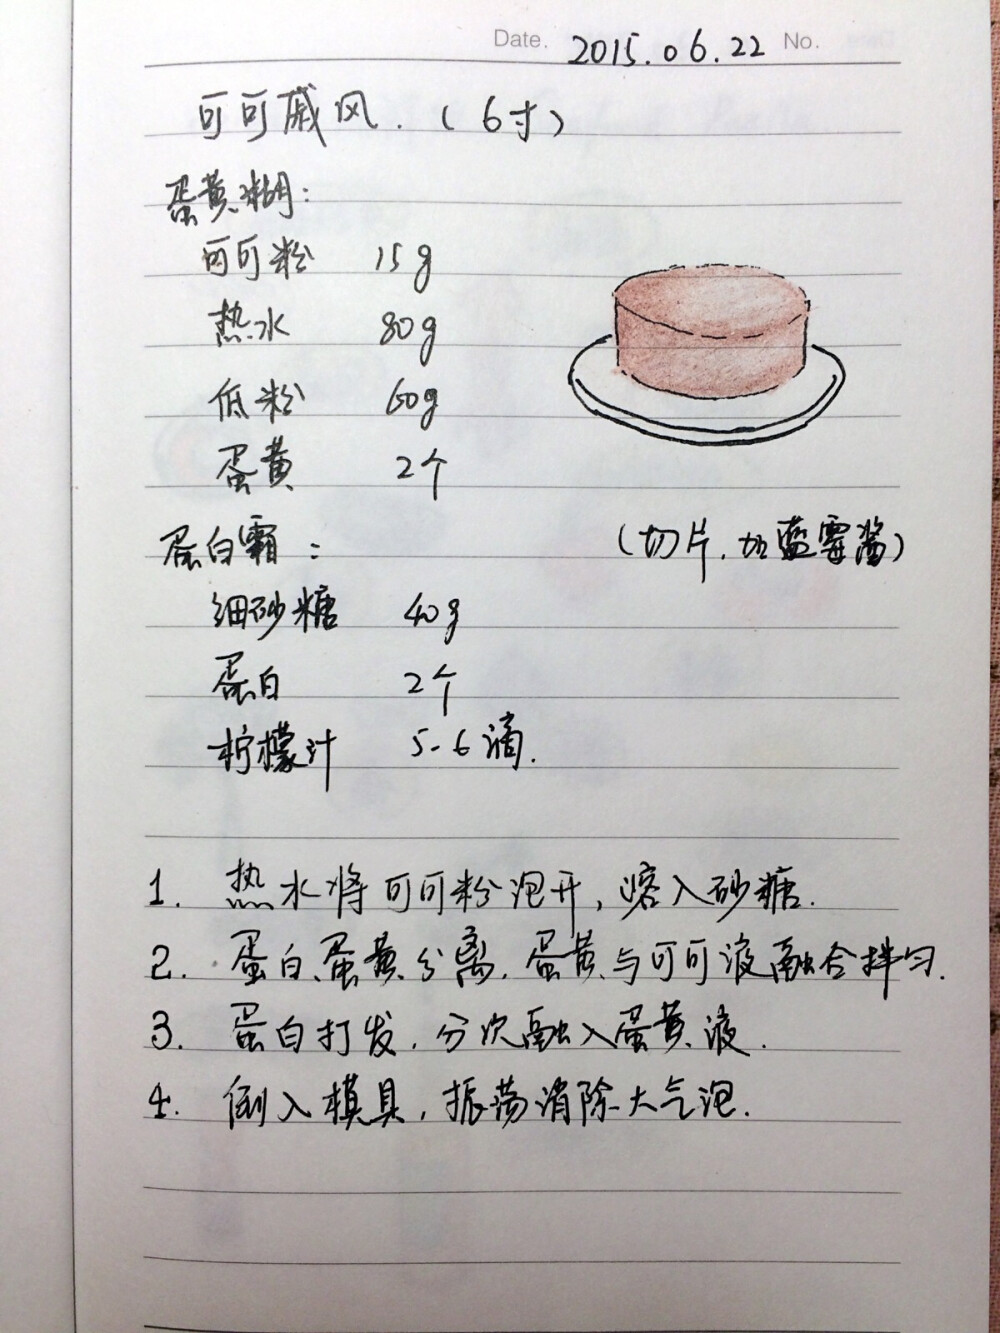 Date. 2015.06.22 No.
可可戚风.（6寸）
蛋黄糊：
可可粉 15g
热水 80g
低粉 60g
蛋黄 2个
蛋白霜：
（切片，加蓝莓酱）
细砂糖 40g
蛋白 2个
柠檬汁 5-6滴.
1. 热水将可可粉泡开，溶入砂糖.
2. 蛋白、蛋黄分离，蛋黄与可可液融合拌匀.
3. 蛋白打发，分次融入蛋黄液.
4. 倒入模具，振荡消除大气泡.